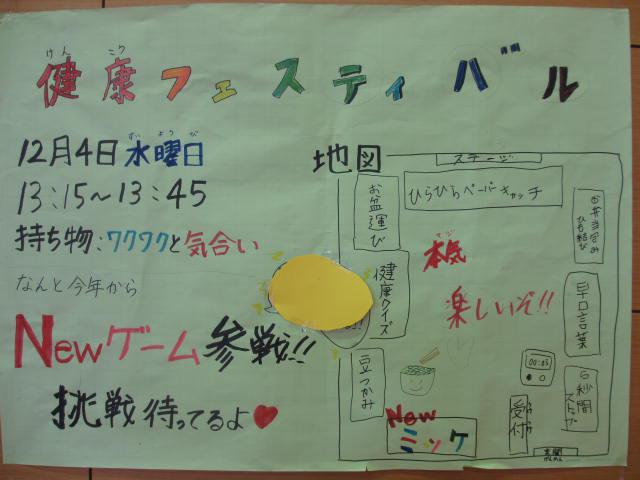 けん こう
健康フェスティバル
すいようび
12月4日水曜日
13:15～13:45
持ち物:ワクワクと気合い
なんと今年から
Newゲーム参戦!!
挑戦待ってるよ
地図
ステージ
ひらひらペーパーキャッチ
お盆運び
健康クイズ
豆つかみ
マジ
本気
楽しいぞ!!
お弁当包み
ひも結び
早口言葉
00:05
5秒間
ストップ
受付
New
ミッケ
玄関